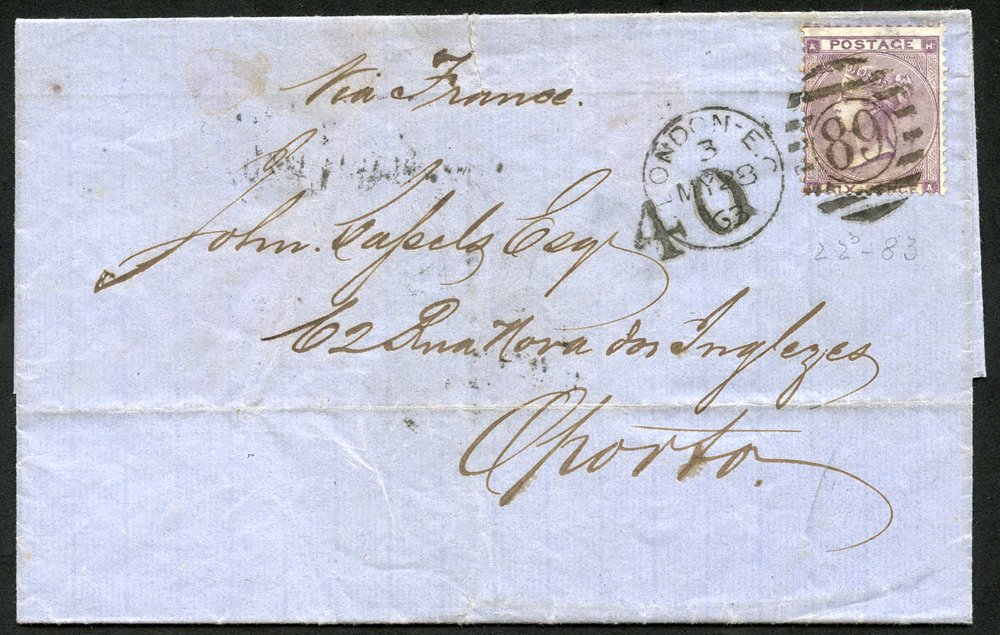 Via France.
A POSTAGE H
LONDON-E.C
3
MY 28
63
89
40
SIX PENCE A
22⁰-83
John. Caſsels Esqr
62 Rua Nova dos Inglezes
Oporto.